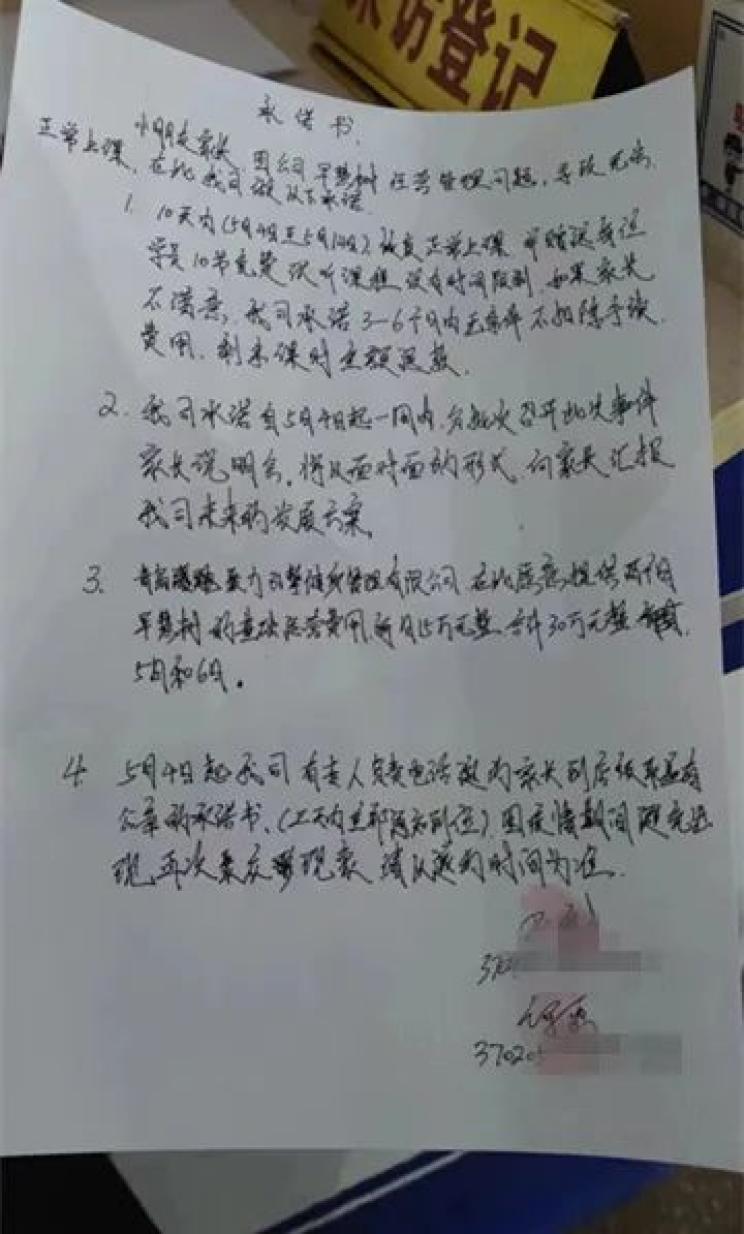 来访登记
承诺书
小朋友家长 因公司早慧树经营管理问题，导致无法
正常上课，在此我司做以下承诺
1. 10天内(5月4日至5月14日)恢复正常上课 并赠送每位
学员10节免费 课程 没有时间限制 如果家长
不满意，我司承诺3-6个月内无条件不扣除手续
费用，剩余课时全额退款。
2. 我司承诺自5月4日起一周内，分批次召开此次事件
家长说明会，将以面对面的形式，向家长汇报
我司未来的发展方案。
3. 管理有限公司 在此愿意提供两个月
早慧树的 运营费用，每月15万元整，合计30万元整
5月和6月。
4. 5月4日起我司有专人负责电话邀约家长到店领取盖有
公章的承诺书，(三天内 到位)因疫情期间避免出
现再次聚众现象 请以邀约时间为准。
370
37020